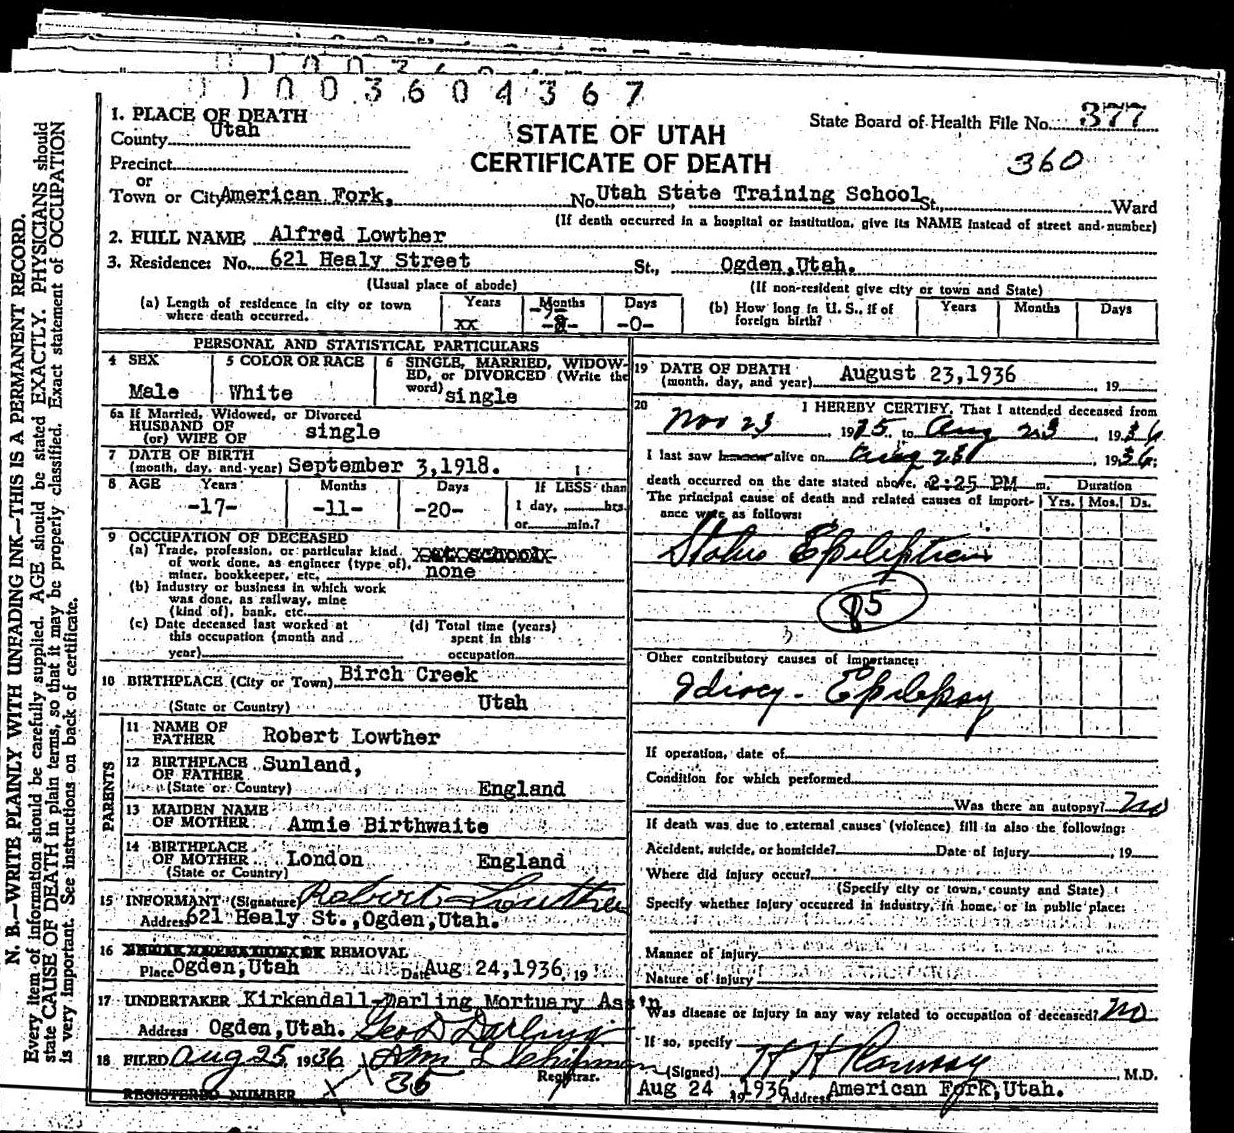 1 1 0 0 3 6 0 4 3 6 7
1. PLACE OF DEATH
County Utah
Precinct
or
Town or City American Fork,
STATE OF UTAH
CERTIFICATE OF DEATH
State Board of Health File No. 377
360
No. Utah State Training School St., Ward
(If death occurred in a hospital or institution, give its NAME instead of street and number)
2. FULL NAME Alfred Lowther
3. Residence: No. 621 Healy Street St., Ogden, Utah.
(Usual place of abode) (If non-resident give city or town and State)
(a) Length of residence in city or town where death occurred. Years xx Months -9- Days -0-
(b) How long in U. S., if of foreign birth? Years Months Days
PERSONAL AND STATISTICAL PARTICULARS
4 SEX Male
5 COLOR OR RACE White
6 SINGLE, MARRIED, WIDOWED, or DIVORCED (Write the word) single
6a If Married, Widowed, or Divorced
HUSBAND OF
(or) WIFE OF single
7 DATE OF BIRTH
(month, day, and year) September 3,1918.
8 AGE Years -17- Months -11- Days -20- If LESS than 1 day, hrs. or min.?
9 OCCUPATION OF DECEASED
(a) Trade, profession, or particular kind of work done, as engineer (type of), miner, bookkeeper, etc. none
(b) Industry or business in which work was done, as railway, mine (kind of), bank, etc.
(c) Date deceased last worked at this occupation (month and year)
(d) Total time (years) spent in this occupation
10 BIRTHPLACE (City or Town) Birch Creek
(State or Country) Utah
PARENTS
11 NAME OF FATHER Robert Lowther
12 BIRTHPLACE OF FATHER Sunland,
(State or Country) England
13 MAIDEN NAME OF MOTHER Annie Birthwaite
14 BIRTHPLACE OF MOTHER London England
(State or Country)
15 INFORMANT (Signature) Robert Lowther
Address 621 Healy St., Ogden, Utah.
16 REMOVAL
Place Ogden, Utah Date Aug 24,1936, 19
17 UNDERTAKER Kirkendall-Darling Mortuary Ass'n
Address Ogden, Utah. Geo D Darling
18 FILED Aug 25, 1936
Registrar.
36
REGISTERED NUMBER
19 DATE OF DEATH
(month, day, and year) August 23,1936, 19
20 I HEREBY CERTIFY, That I attended deceased from
Nov 23, 1935, to Aug 23, 1936
I last saw alive on Aug 23, 1936;
death occurred on the date stated above, at 2:25 PM m. Duration
The principal cause of death and related causes of importance were as follows: Yrs. Mos. Ds.
Status Epilepticus
85
Other contributory causes of importance:
Idiocy - Epilepsy
If operation, date of
Condition for which performed
Was there an autopsy? No
If death was due to external causes (violence) fill in also the following:
Accident, suicide, or homicide? Date of injury, 19
Where did injury occur?
(Specify city or town, county and State)
Specify whether injury occurred in industry, in home, or in public place:
Manner of injury
Nature of injury
Was disease or injury in any way related to occupation of deceased? No
If so, specify
(Signed) H H Ramsay, M.D.
Aug 24, 1936 Address American Fork, Utah.
N. B.—WRITE PLAINLY WITH UNFADING INK—THIS IS A PERMANENT RECORD.
Every item of information should be carefully supplied. AGE should be stated EXACTLY. PHYSICIANS should
state CAUSE OF DEATH in plain terms, so that it may be properly classified. Exact statement of OCCUPATION
is very important. See instructions on back of certificate.